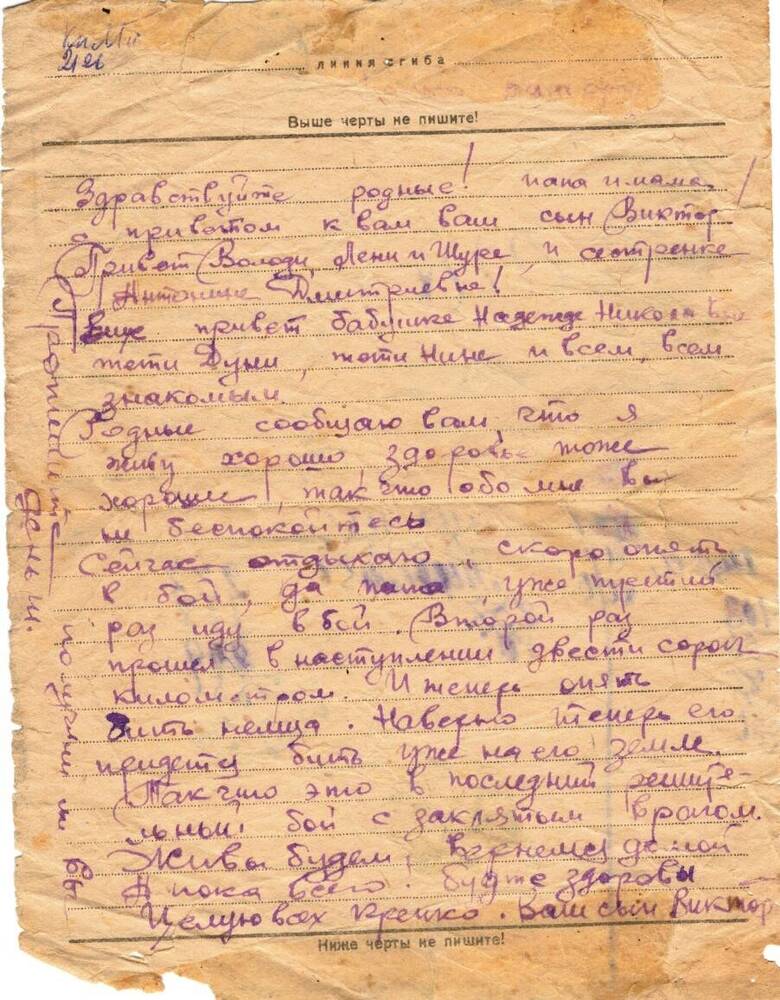 КПМГИ
2126
ЛИНИЯ СГИБА
Выше черты не пишите!
Здравствуйте родные! папа и мама!
с приветом к вам ваш сын Виктор
Привет Володи, Лени и Шуре, и сестренке
Антонине Дмитриевне!
Еще привет бабушке Надежде Николаевне
тети Дуни, тети Нине и всем, всем
знакомым.
Родные сообщаю вам, что я
живу хорошо, здоровье тоже
хорошее, так что обо мне вы
не беспокойтесь
Сейчас отдыхаю, скоро опять
в бой, да папа, уже третий
раз иду в бой. Второй раз
прошел в наступлении двести сорок
километром. И теперь опять
бить немца. Наверно теперь его
придется бить уже на его земле.
Так что это в последний решите-
льный бой с заклятым врагом.
Живы будем, вернемся домой
А пока всего. будте здоровы
Целую всех крепко. Ваш сын Виктор
Ниже черты не пишите!
получили ли вы
деньги.